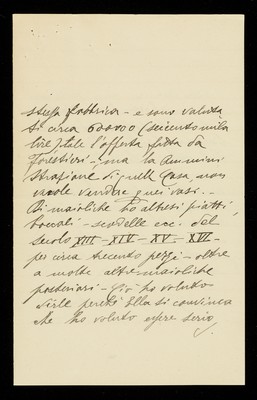 stessa fabbrica - e sono valutati
di circa 600000 (seicentomila
lire) tale l'offerta fatta da
forestieri - ma la Ammini
strazione di quelle Casa, non
vuole vendere quei vasi. -
Di maioliche ho altresì piatti,
boccali - scodelle ecc. del
secolo XIII - XIV - XV - XVI -
per circa trecento pezzi - oltre
a molte altre maioliche
posteriori - Ciò ho voluto
dirle perchè Ella si convinca
che ho voluto essere serio